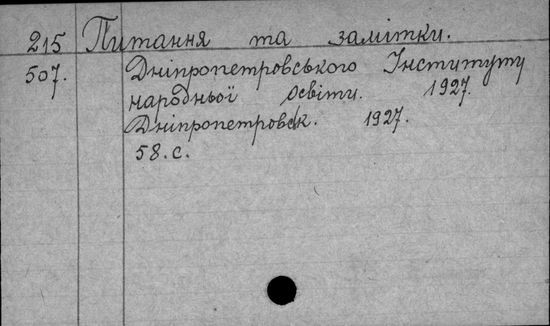 215 Питання та замітки.
507. Дніпропетровського Інституту
народньої освіти. 1927.
Дніпропетровськ. 1927.
58. с.